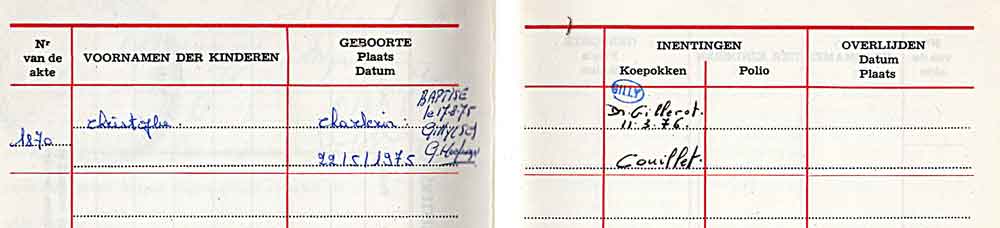 Nr
van de
akte
VOORNAMEN DER KINDEREN
GEBOORTE
Plaats
Datum
INENTINGEN
Koepokken
Polio
OVERLIJDEN
Datum
Plaats
1870
Christophe.
Charleroi.
22/5/1975
BAPTISE
le 17-8-75
Gilly
GILLY
Dr. Gillerot.
11.3.76.
Couillet.